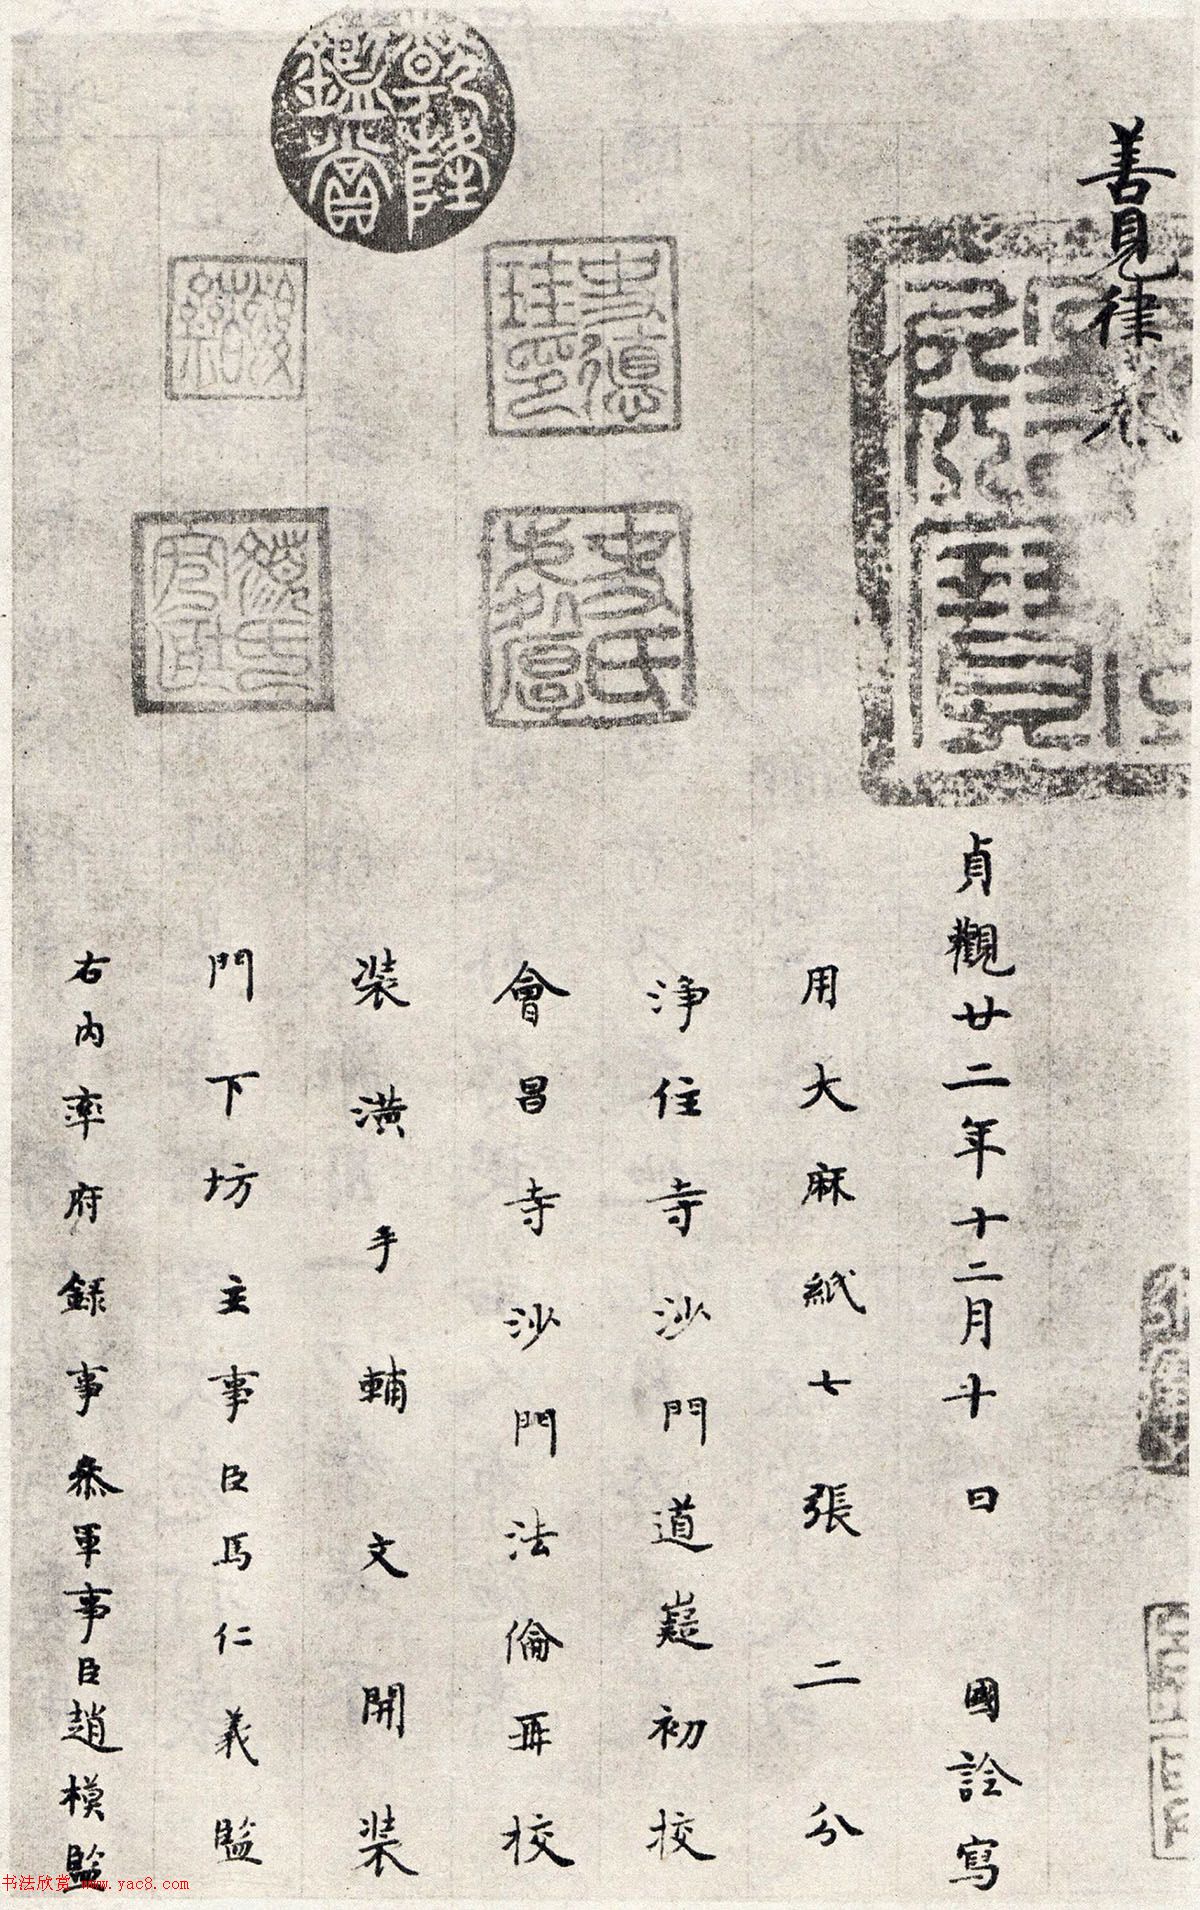 善見律卷
貞觀廿二年十二月十日 國詮寫
用大麻紙七張二分
淨住寺沙門道嶷初校
會昌寺沙門法倫再校
裝潢手輔文開裝
門下坊主事臣馬仁義監
右內率府錄事參軍事臣趙模監
乾隆鑑賞
史德珪印
史氏
书法欣赏 www.yac8.com